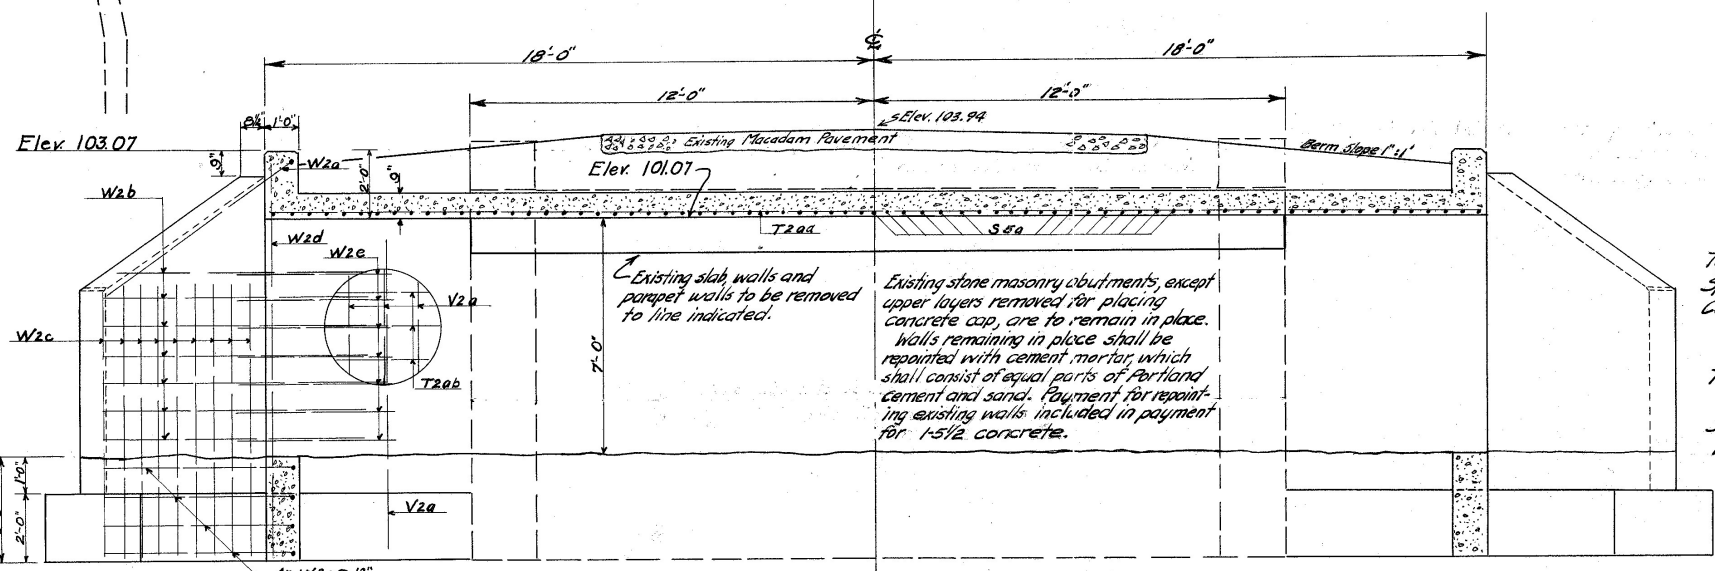 18'-0"
℄
18'-0"
12'-0"
12'-0"
Elev. 103.94
1'-0"
Elev. 103.07
Existing Macadam Pavement
Berm Slope 1":1'
9"
W2a
2'-0"
9"
Elev. 101.07
W2b
T2aa
S5a
W2d
W2e
Existing slab, walls and
parapet walls to be removed
to line indicated.
Existing stone masonry abutments, except
upper layers removed for placing
concrete cap, are to remain in place.
Walls remaining in place shall be
repointed with cement mortar, which
shall consist of equal parts of Portland
cement and sand. Payment for repoint-
ing existing walls included in payment
for 1-5½ concrete.
V2a
W2c
7'-0"
T2ab
1'-0"
2'-0"
V2a